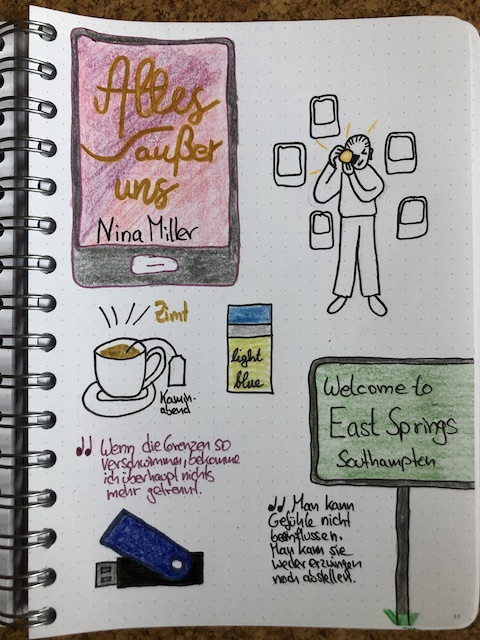 Alles
außer
uns
Nina Miller
Zimt
Kamin-
abend
light
blue
Welcome to
East Springs
Southampten
Wenn die Grenzen so
verschwimmen, bekomme
ich überhaupt nichts
mehr getrennt.
Man kann
Gefühle nicht
beeinflussen.
Man kann sie
weder erzwingen
noch abstellen.